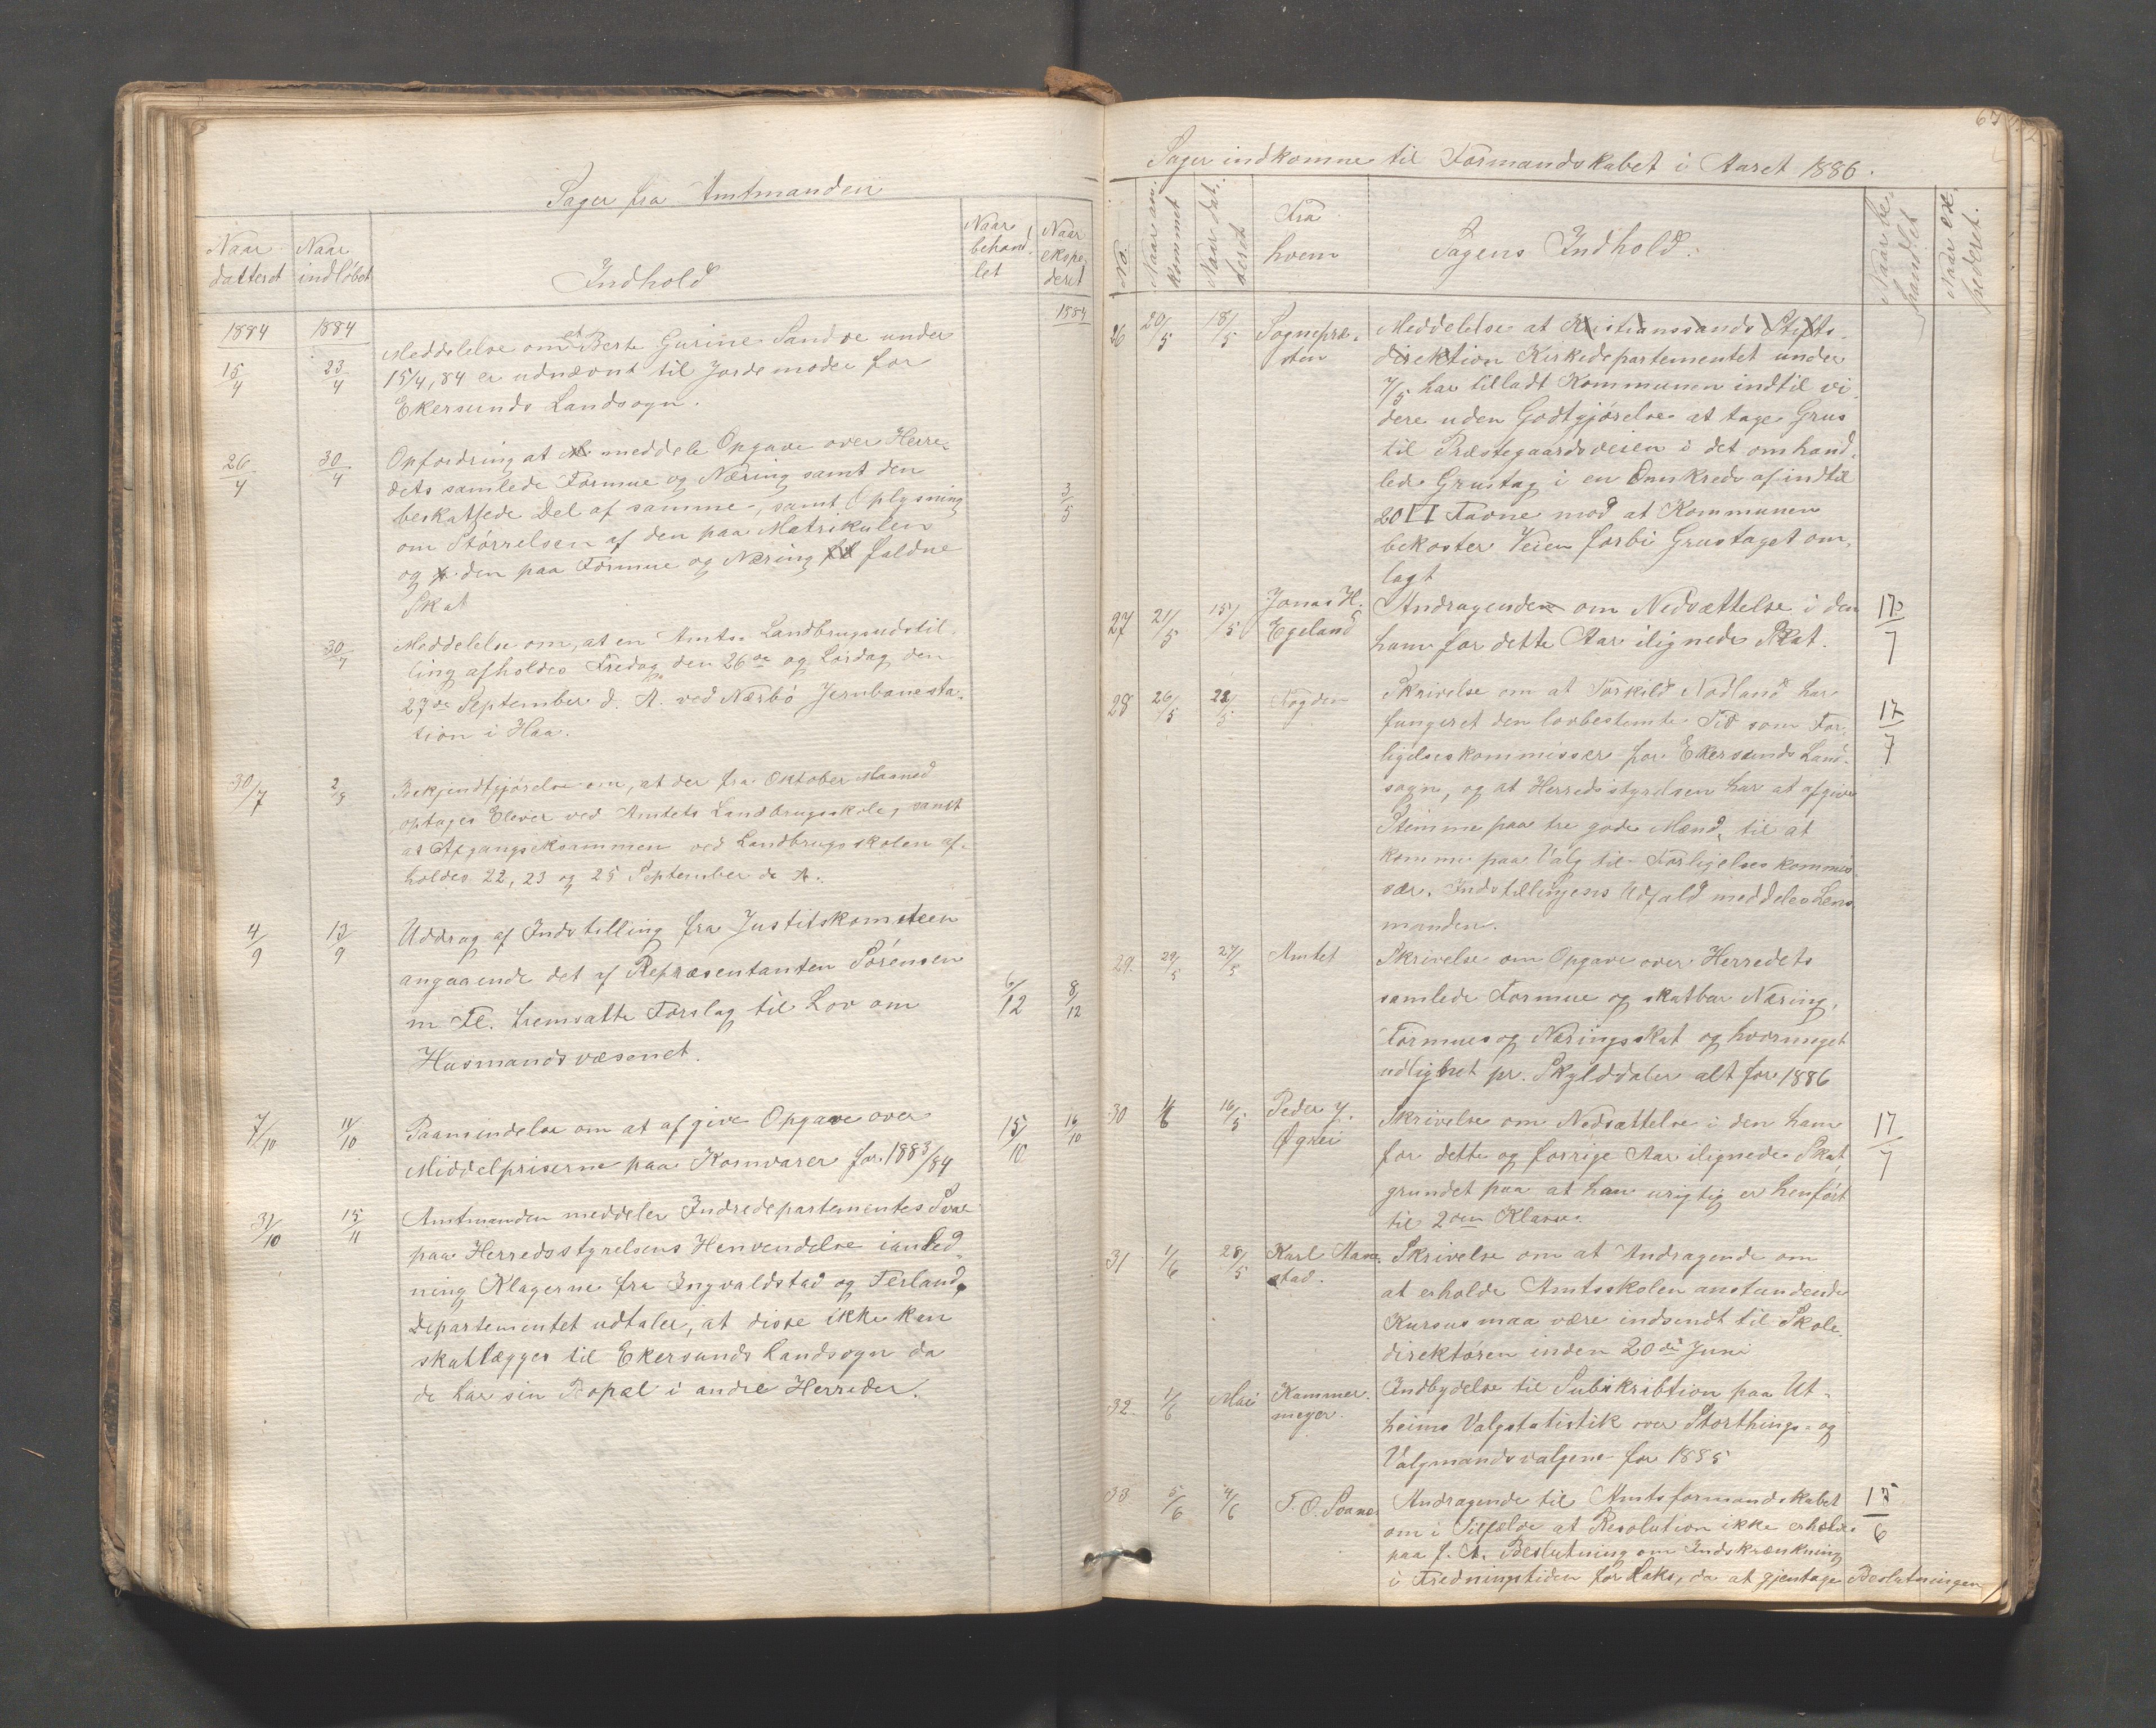 Sager fra Amtmanden
Naar datteret
Naar indløbet
Indhold
Naar behand- let
Naar ekspe- deret
1884 1884 1884
15/4 23/4 Meddelelse om at Berte Gurine Sandve under
15/4, 84 er udnævnt til Jordemoder for
Ekersunds Landsogn.
26/4 30/4 Opfordring at meddele Opgave over Herre-
dets samlede Formue og Næring samt den
beskattede Del af samme, samt Oplysning 3/5
om Størrelsen af den paa Matrikulen
og den paa Formue og Næring faldne
Skat
30/7 Meddelelse om, at en Amts- Landbrugsudstil-
ling afholdes Fredag den 26de og Lørdag den
27de September d. A. ved Nærbø Jernbanesta-
tion i Haa.
30/7 2/8 Bekjendtgjørelse om, at der fra Oktober Maaned
optages Elever ved Amtets Landbrugsskole, samt
at Afgangseksammen ved Landbrugsskolen af-
holdes 22, 23 og 25 September d. A.
4/9 13/9 Uddrag af Indstilling fra Justitskomiteen
angaaende det af Repræsentanten Sørensen
m Fl. fremsatte Forslag til Lov om 6/12 8/12
Husmandsvæsenet.
7/10 11/10 Paamindelse om at afgive Opgave over 15/10 16/10
Middelpriserne paa Kornvarer for 1883/84
31/10 15/11 Amtmanden meddeler Indredepartementes Svar
paa Herredsstyrelsens Henvendelse ianled-
ning Klagerne fra Ingvaldstad og Ferland,
Departementet udtaler, at disse ikke kan
skatlægges til Ekersunds Landsogn da
de har sin Bopæl i andre Herreder.
67
Sager indkomne til Formandskabet i Aaret 1886.
No.
Naar an- kommet
Naar dat- teret
Fra hvem
Sagens Indhold.
Naar be- handlet
Naar ex- pederet.
26 20/5 18/5 Sognepræ- Meddelelse at Kristianssands Stifts-
sten direktion Kirkedepartementet under
7/5 har tilladt Kommunen indtil vi-
dere uden Godtgjørelse at tage Grus
til Præstegaardsveien i det omhand-
lede Grustag i en Omkreds af indtil
20 Favne mod at Kommunen
bekoster Veien forbi Grustaget om-
lagt
27 21/5 15/5 Jonas H. Andragende om Nedsættelse i den 17/7
Egeland ham for dette Aar ilignede Skat.
28 26/5 22/5 Fogden Skrivelse om at Torkild Nodland har
fungeret den lovbestemte Tid som For- 17/7
ligelseskommissær for Ekersunds Land-
sogn, og at Herredsstyrelsen har at afgive
Stemme paa tre gode Mænd, til at
komme paa Valg til Forligelseskommis-
sær. Indstillingens Udfald meddeles Lens-
manden.
29. 29/5 27/5 Amtet Skrivelse om Opgave over Herredets
samlede Formue og skatbar Næring,
Formues og Næringsskat og hvormeget
udlignet pr. Skylddaler alt for 1886
30 1/6 16/5 Peder Skrivelse om Nedsættelse i den ham 17/7
Øgrei for dette og forrige Aar ilignede Skat
grundet paa at han urigtig er henført
til 2den Klasse.
31 1/6 28/5 Karl Aane- Skrivelse om at Andragende om
stad. at erholde Amtsskolen anstundende
Kursus maa være indsendt til Skole-
direktøren inden 20de Juni
32. 1/6 Mai Kammer- Indbydelse til Subskribtion paa Ut-
meyer. heims Valgstatistik over Storthings- og
Valgmandsvalgene for 1885
33 5/6 4/6 T. O. Svanes Andragende til Amtsformandskabet 17/6
om i Tilfælde at Resolution ikke erholdes
paa f. A. Beslutning om Indskrænkning
i Fredningstiden for Laks, da at gjentage Beslutningen